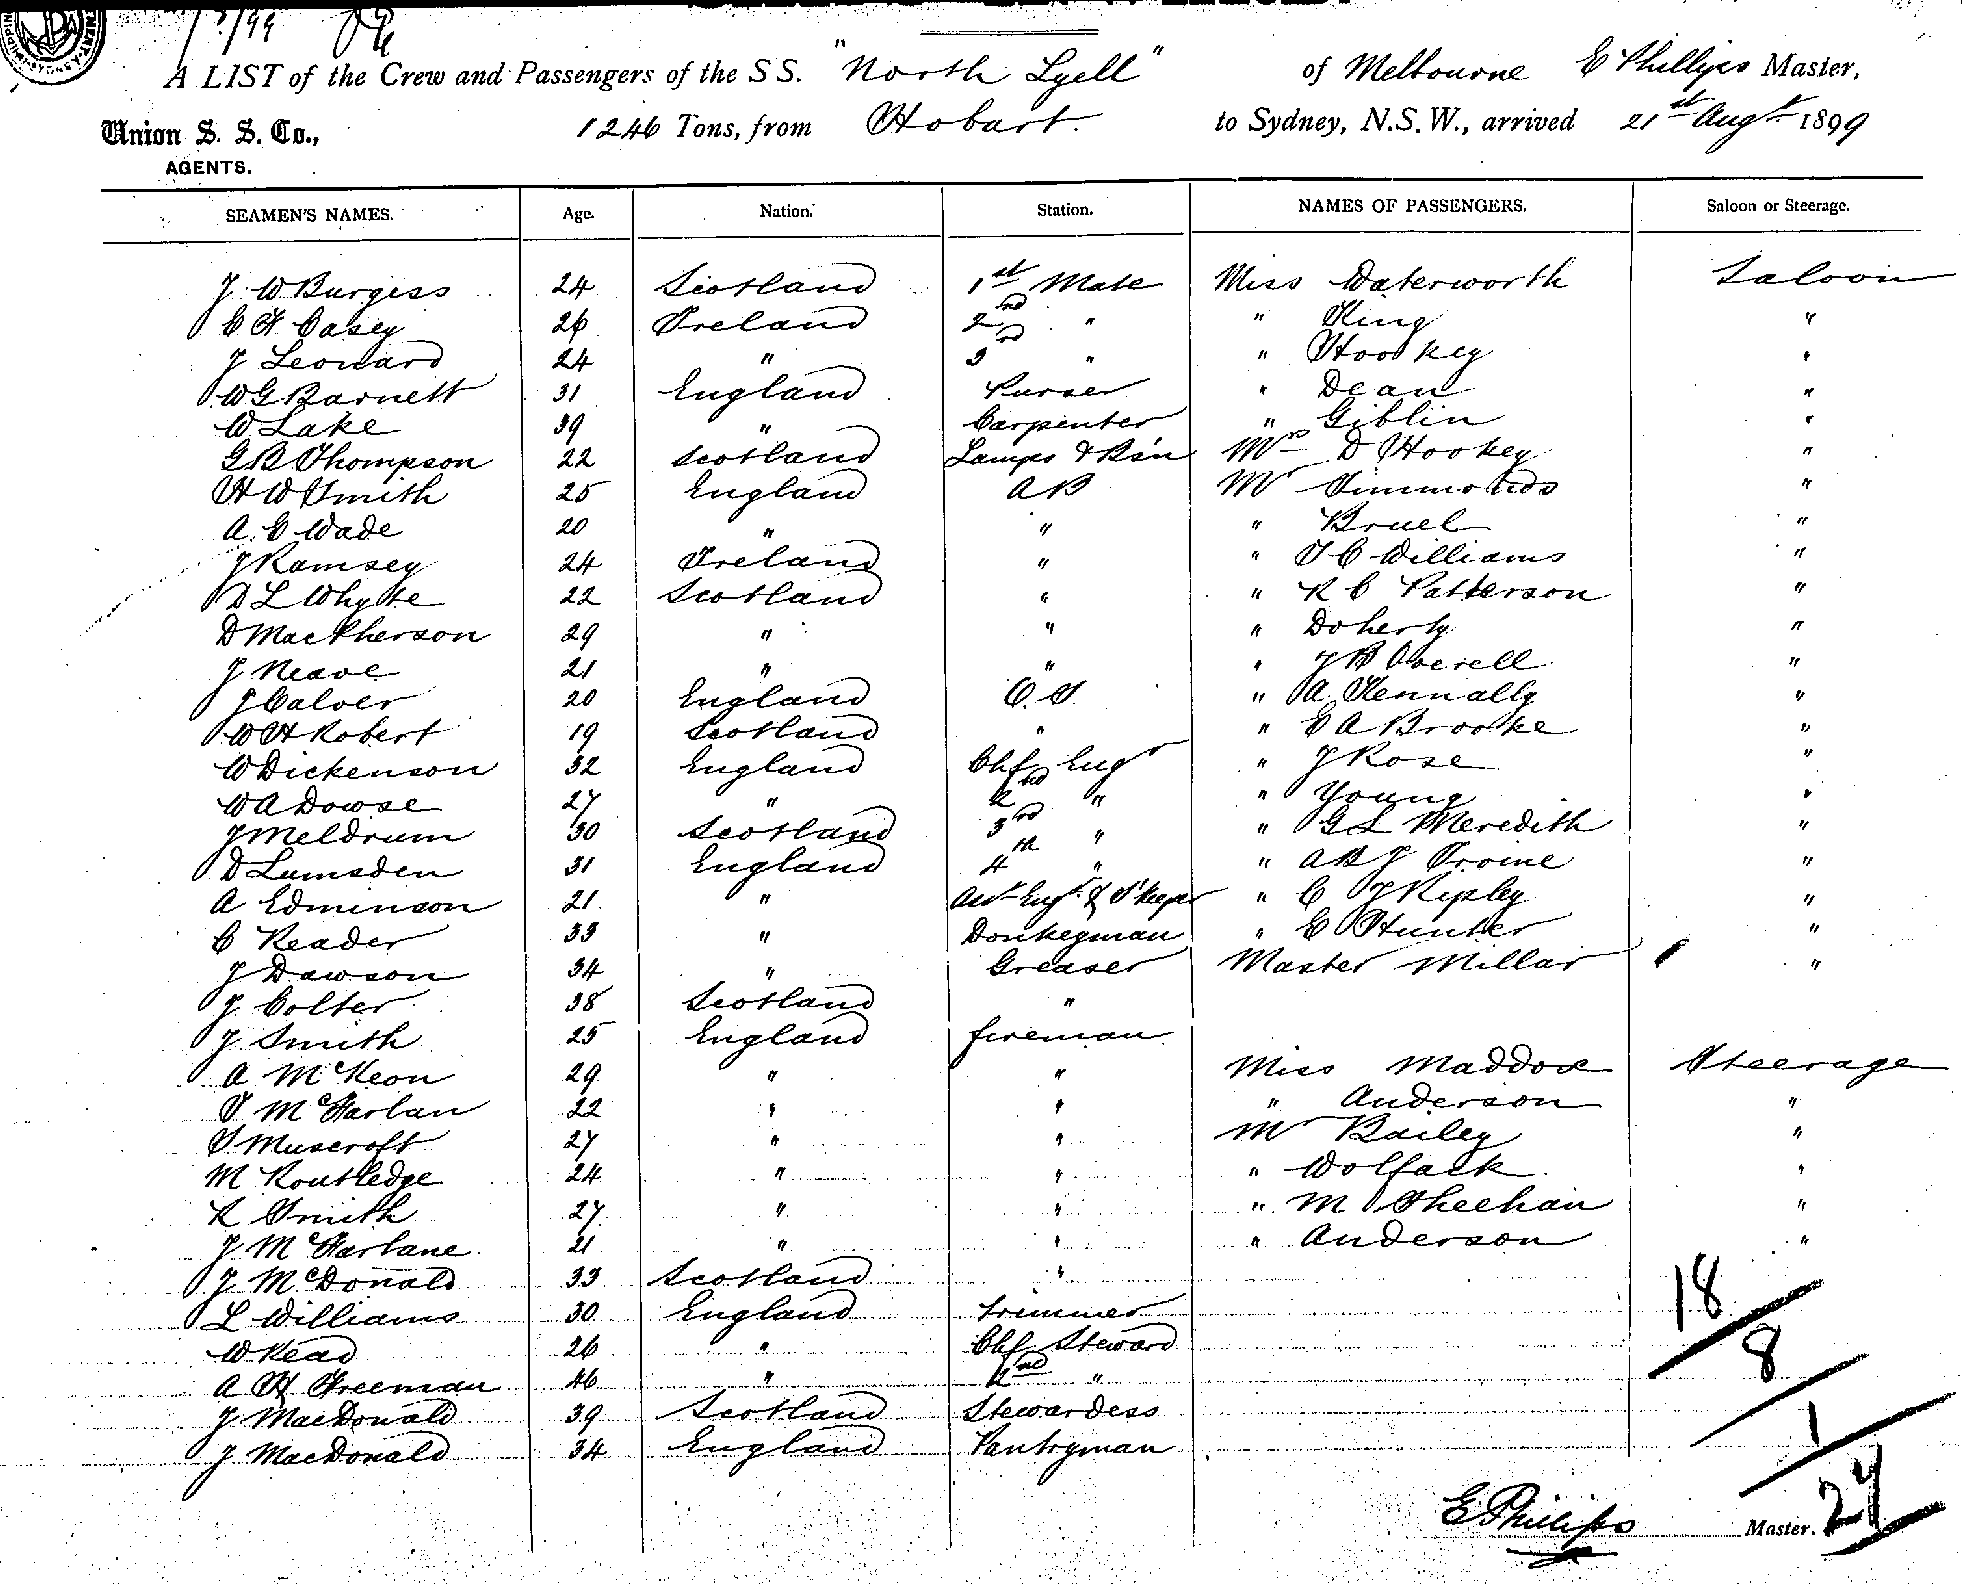 A LIST of the Crew and Passengers of the S S. "North Lyell" of Melbourne E Phillips Master,
Union S. S. Co., 1246 Tons, from Hobart. to Sydney, N.S.W., arrived 21st Augt 1899
AGENTS.
SEAMEN'S NAMES. Age. Nation. Station. NAMES OF PASSENGERS. Saloon or Steerage.
J W Burgess 24 Scotland 1st Mate Miss Waterworth Saloon
C F Casey 26 Ireland 2nd " " King "
J Leonard 24 " 3rd " " Hookey "
W G Barnett 31 England Purser " Dean "
W Lake 39 " Carpenter " Giblin "
G B Thompson 22 Scotland Lamps & Mrs D Hookey "
H W Smith 25 England A B Mr Simmonds "
A C Wade 20 " " " Bruel "
J Ramsey 24 Ireland " " T C Williams "
D L Whyte 22 Scotland " " R C Patterson "
D MacPherson 29 " " " Doherty "
J Neave 21 " " " J B Overell "
J Calver 20 England O.S. " A Kennally "
W H Robert 19 Scotland " " E A Brooke "
W Dickenson 32 England Chf Engr " J Rose "
W A Dowse 27 " 2nd " " Young "
J Meldrum 30 Scotland 3rd " " G L Meredith "
D Lumsden 31 England 4th " " A B J Irvine "
A Edminson 21 " Asst Engr & S'Keeper " C J Ripley "
C Reader 33 " Donkeyman " C Hunter "
J Dawson 34 " Greaser Master Millar "
J Colter 38 Scotland "
J Smith 25 England fireman
A McKeon 29 " " Miss Maddox Steerage
T McFarlan 22 " " " Anderson "
T Muscroft 27 " " Mr Bailey "
M Routledge 24 " " " Wolfack "
R Smith 27 " " " M Sheehan "
J McFarlane 21 " " " Anderson "
J McDonald 33 Scotland "
L Williams 30 England trimmer
W Read 26 " Chf Steward
A H Freeman 46 " 2nd "
J MacDonald 39 Scotland Stewardess
J MacDonald 34 England Pantryman
18
8
1
27
E Phillips Master.